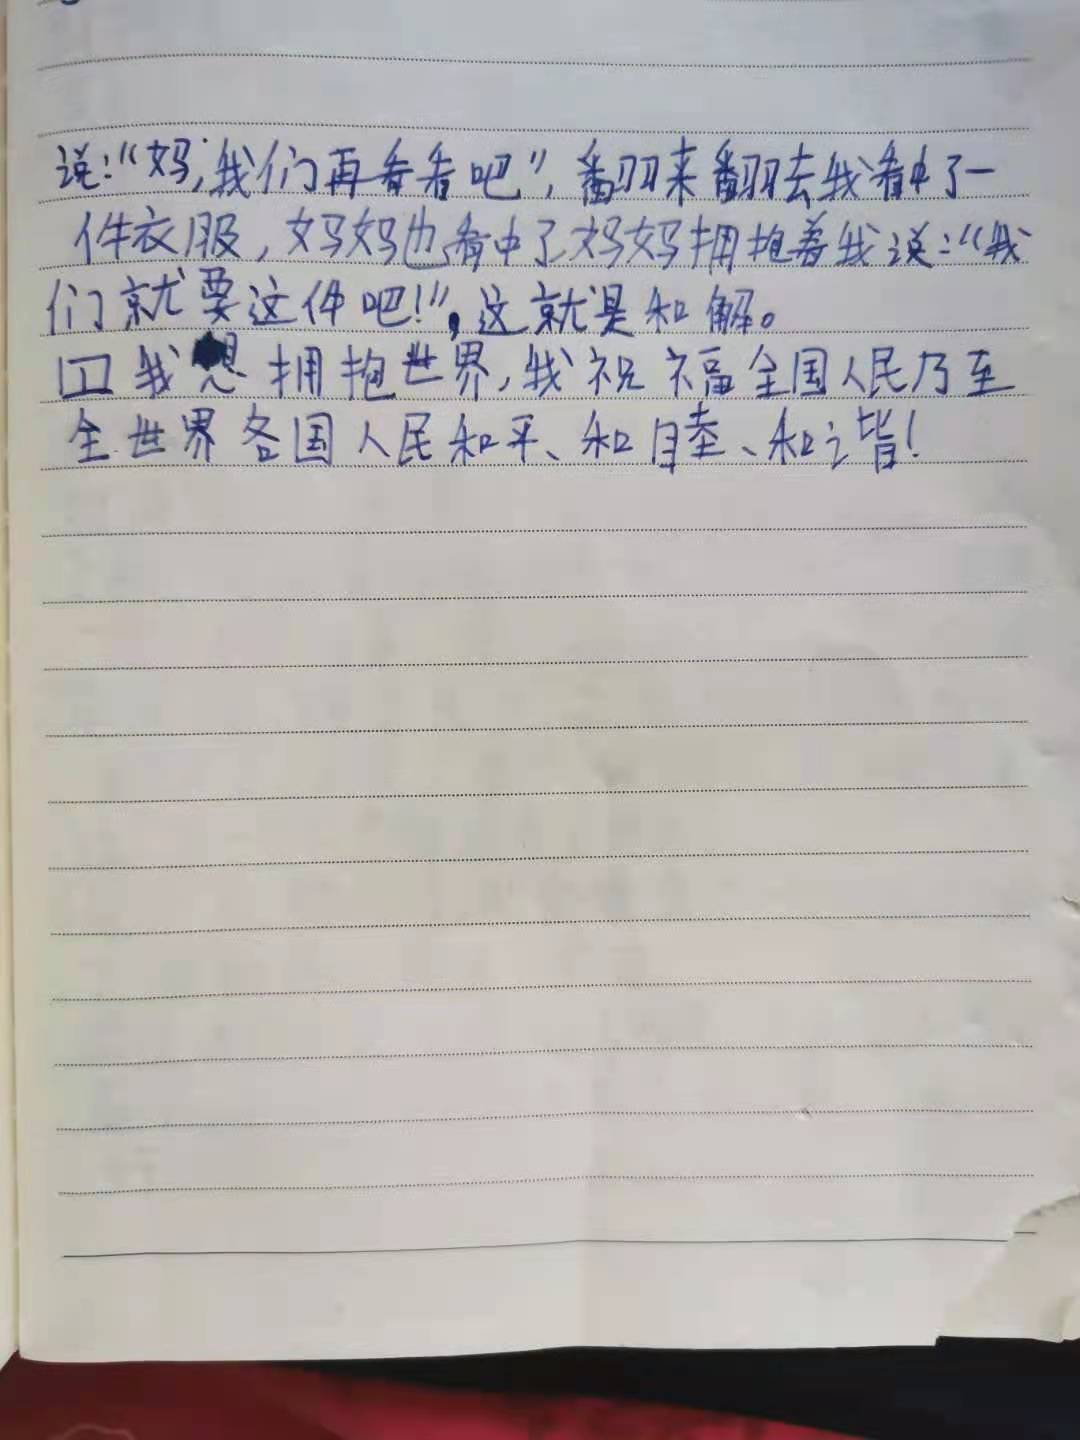 说:“妈,我们再看看吧”,翻来翻去我看中了一
件衣服,妈妈也看中了妈妈拥抱着我说:“我
们就要这件吧!”,这就是和解。
我想拥抱世界,我祝福全国人民乃至
全世界各国人民和平、和睦、和谐!